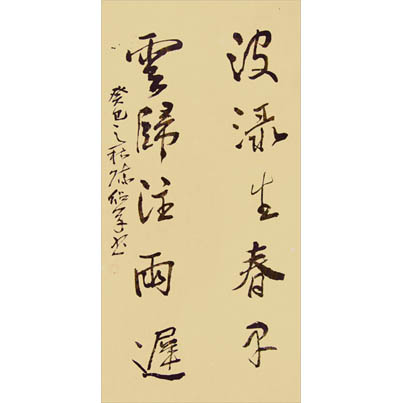 波生春早
雲歸注雨遲
癸巳之秋